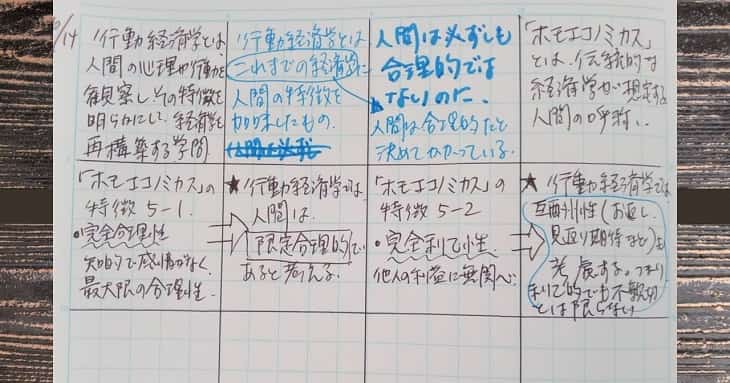 10/14
行動経済学とは、
人間の心理や行動を
観察し、その特徴を
明らかにして、経済学を
再構築する学問
行動経済学とは
これまでの経済学に
人間の特徴を
加味したもの.
人間は必ずしも
合理的では
ないのに、
人間は合理的だと
決めてかかっている.
「ホモエコノミカス」
とは、伝統的な
経済学が想定する
人間の呼称.
「ホモエコノミカス」の
特徴5-1.
・完全合理性
知的で感情がなく、
最大限の合理性.
★行動経済学では、
人間は、
限定合理的で
あると考える.
「ホモエコノミカス」の
特徴5-2
・完全利己性.
他人の利益に無関心
★行動経済学では
互酬性(お返し、
見返り期待など)も
考慮する。つまり
利己的でも不親切
とは限らない